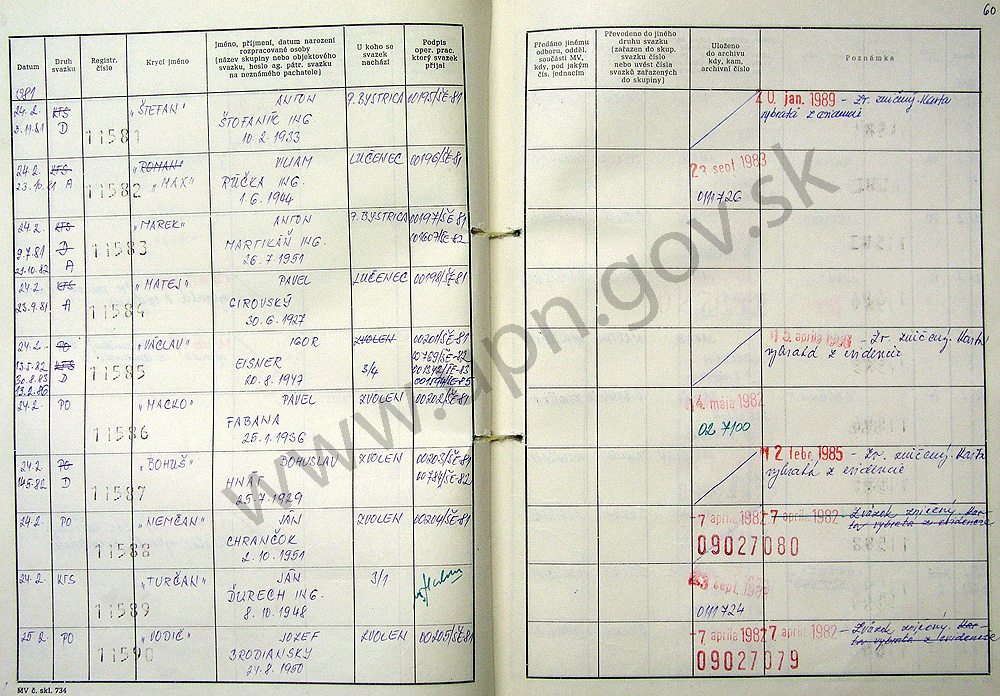 60
Datum
Druh svazku
Registr. číslo
Krycí jméno
Jméno, příjmení, datum narození rozpracované osoby (název skupiny nebo objektového svazku, heslo ag. pátr. svazku na neznámého pachatele)
U koho se svazek nachází
Podpis oper. prac. který svazek přijal
Předáno jinému odboru, odděl. součásti MV, kdy, pod jakým čís. jednacím
Převedeno do jiného druhu svazku (zařazen do skup. svazku číslo nebo uvést čísla svazků zařazených do skupiny)
Uloženo do archivu kdy, kam, archivní číslo
Poznámka
1981
24.2. KTS 11581 „ŠTEFAN" ANTON P. BYSTRICA 00195/ŠE-81
D ŠTOFANÍK ING.
10.2.1933
20. jan. 1989 - Zv. zničený. Karta
vybratá z evidencie
24.2. KTS 11582 „ROMAN" VILIAM LUČENEC 00196/ŠE-81
23.10.81 A „MAX" RÚČKA ING.
1.6.1944
23. sept. 1983
0111726
24.2. KTS 11583 „MAREK" ANTON P. BYSTRICA 00197/ŠE-81
9.7.81 D MARTIKÁŇ ING.
21.10.82 A 26.7.1951
24.2. KTS 11584 „MATEJ" PAVEL LUČENEC 00198/ŠE-81
23.9.81 A GIROVSKÝ
30.6.1927
24.2. PO 11585 „VÁCLAV" IGOR ZVOLEN 00201/ŠE-81
13.5.82 KTS EISNER 3/4 00769/ŠE-82
30.8.83 D 20.8.1947
13.2.86
apríla 1988 - Zv. zničený. Karta
vybratá z evidencie
24.2. PO 11586 „MACKO" PAVEL ZVOLEN 00202/ŠE-81
FABANA
25.1.1936
14. mája 1982
02 7100
24.2. PO 11587 „BOHUŠ" BOHUSLAV ZVOLEN 00203/ŠE-81
14.5.82 D HNÁT 00784/ŠE-82
25.7.1929
12. febr. 1985 - Zv. zničený. Karta
vybratá z evidencie
24.2. PO 11588 „NEMČAN" JÁN ZVOLEN 00204/ŠE-81
CHRANČOK
2.10.1951
-7. apríla 1982 -7. apríla 1982 - Zväzok zničený. Kar-
ta vybratá z evidencie
09027080
24.2. KTS 11589 „TURČAN" JÁN 3/1
ĎURECH ING.
8.10.1948
23. sept.
0111724
25.2. PO 11590 „VODIČ" JOZEF ZVOLEN 00205/ŠE-81
BRODIANSKY
24.8.1950
-7. apríla 1982 -7. apríla 1982 - Zväzok zničený. Kar-
ta vybratá z evidencie
09027079
MV č. skl. 734
www.upn.gov.sk